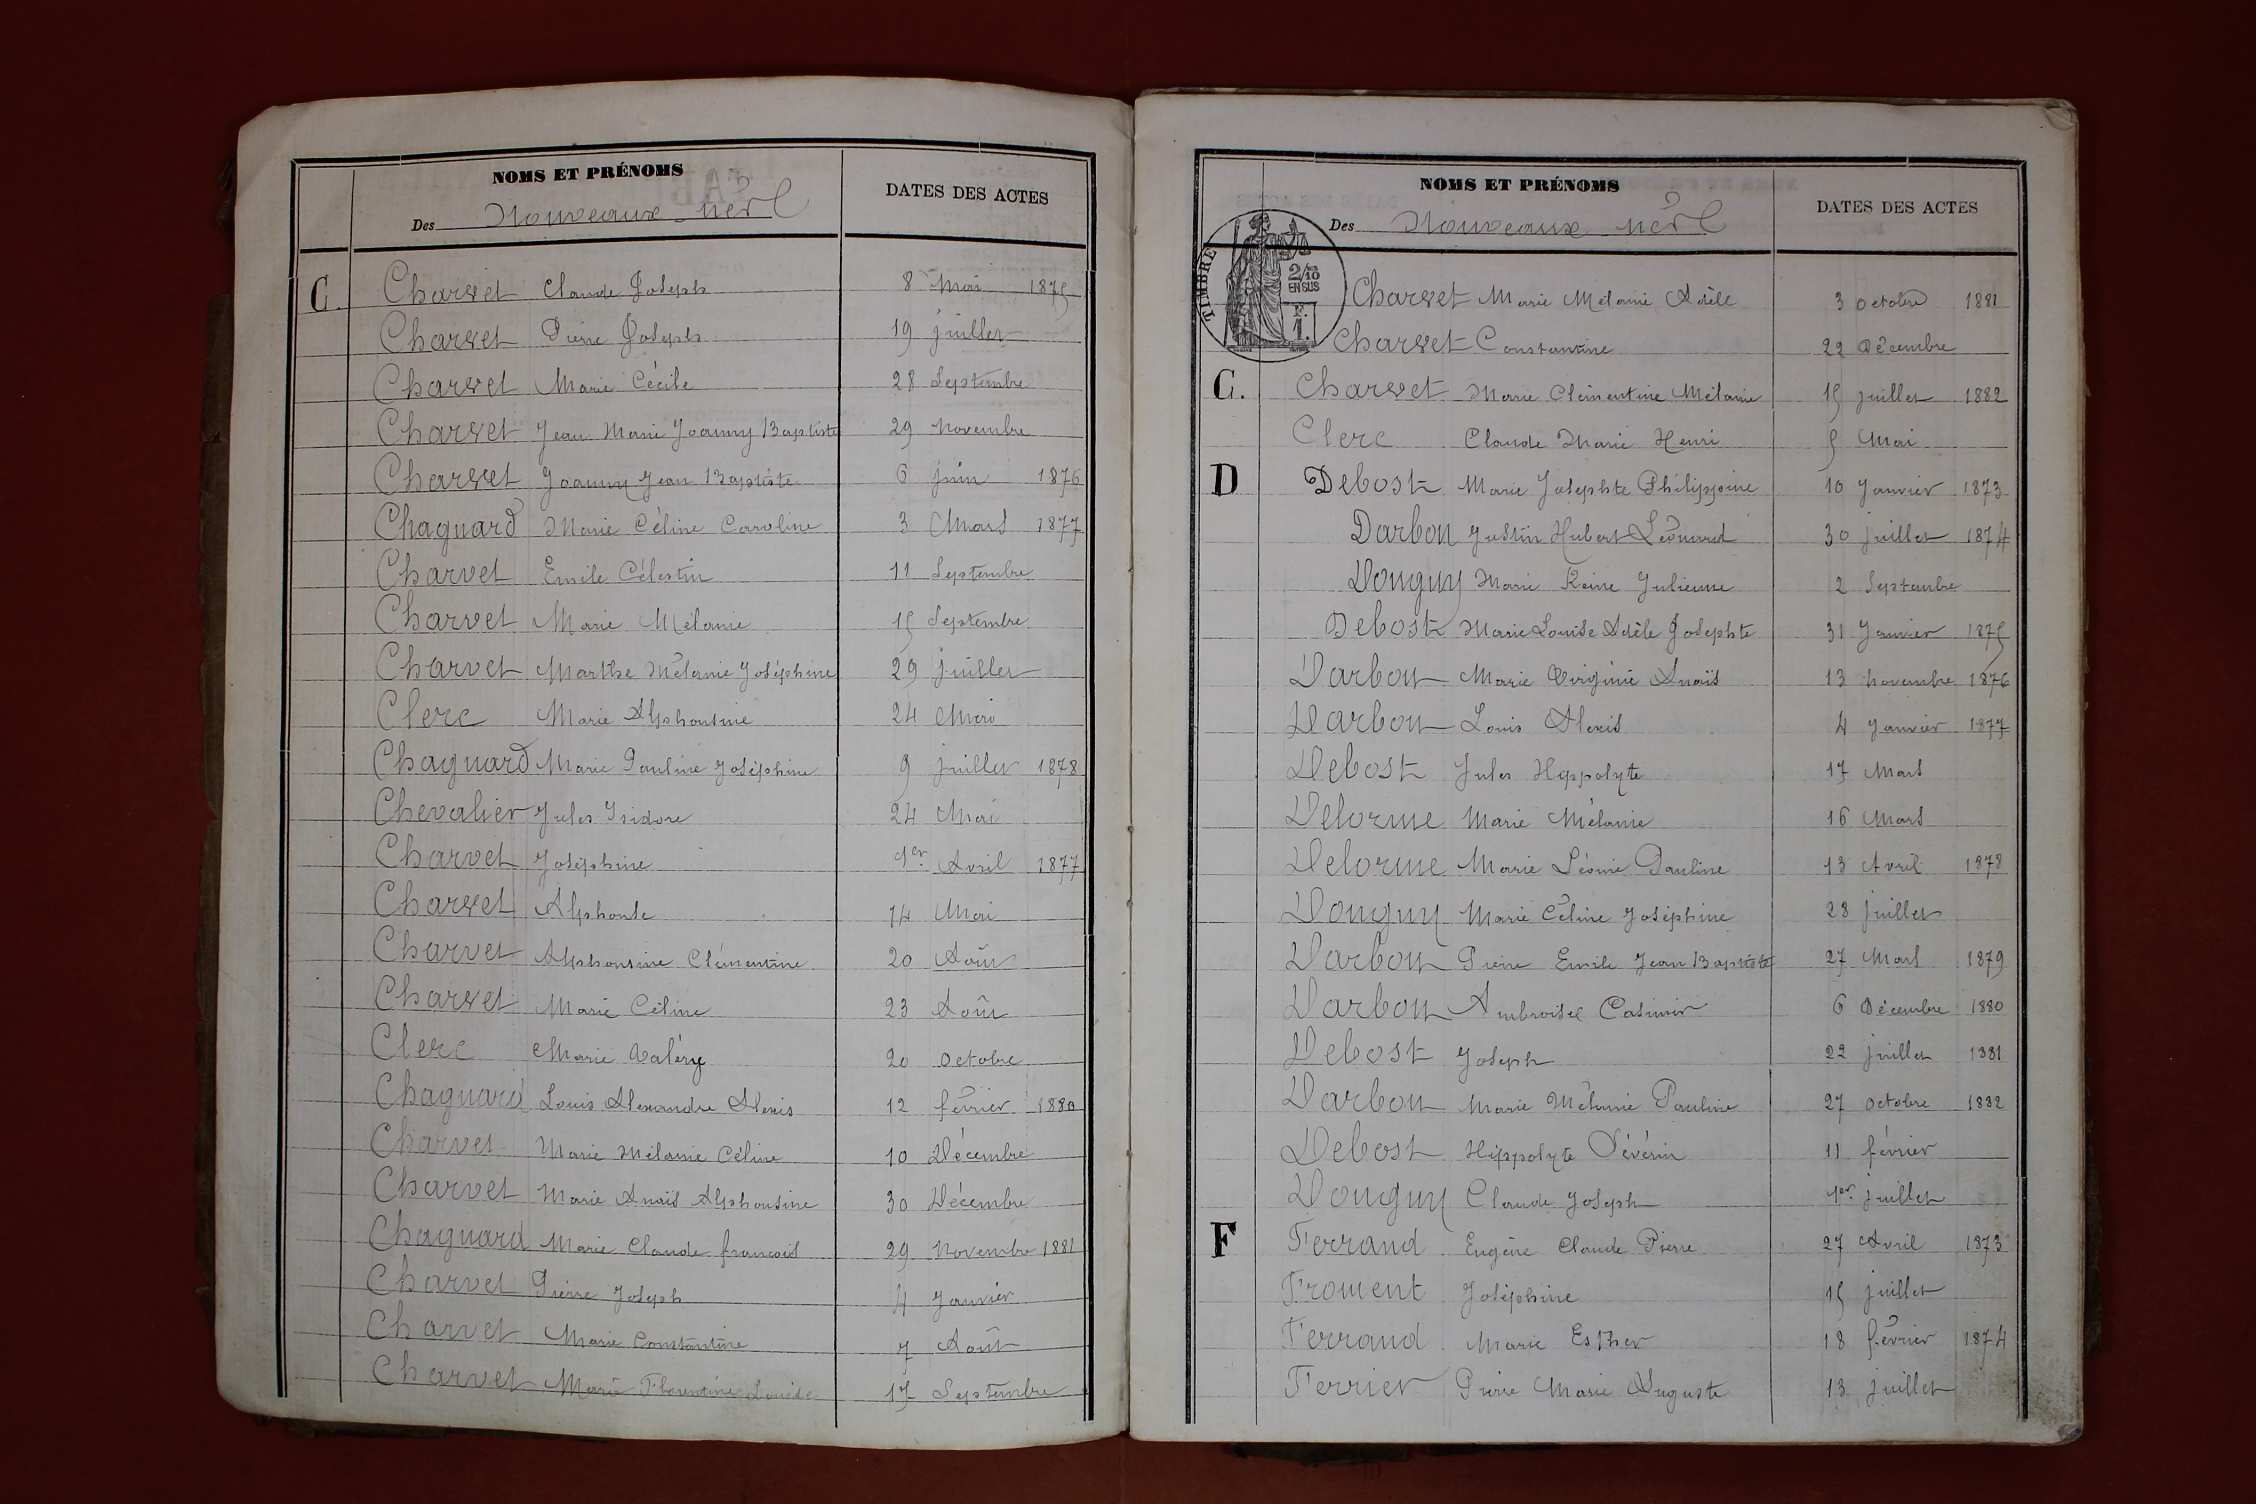 NOMS ET PRÉNOMS
DATES DES ACTES
Des Nouveaux nés
C. Charvet Claude Joseph 8 Mai 1875
Charvet Pierre Joseph 19 juillet
Charvet Marie Cécile 28 Septembre
Charvet Jean Marie Joanny Baptiste 29 Novembre
Charvet Joanny Jean Baptiste 6 juin 1876
Chagnard Marie Céline Caroline 3 Mars 1877
Charvet Emile Célestin 11 Septembre
Charvet Marie Mélanie 15 Septembre
Charvet Marthe Mélanie Joséphine 29 juillet
Clerc Marie Alphonsine 24 Mai
Chagnard Marie Pauline Joséphine 9 juillet 1878
Chevalier Jules Isidore 24 Mai
Charvet Joséphine 1er Avril 1877
Charvet Alphonse 14 Mai
Charvet Alphonsine Clémentine 20 Août
Charvet Marie Céline 23 Août
Clerc Marie Valéry 20 octobre
Chagnard Louis Alexandre Alexis 12 février 1880
Charvet Marie Mélanie Céline 10 Décembre
Charvet Marie Anaïs Alphonsine 30 Décembre
Chagnard Marie Claude françois 29 Novembre 1881
Charvet Pierre Joseph 4 Janvier
Charvet Marie Constantine 7 Août
Charvet Marie Florentine Louise 17 Septembre
NOMS ET PRÉNOMS
DATES DES ACTES
Des Nouveaux nés
TIMBRE
2/10
EN SUS
F.
1.
Charvet Marie Mélanie Adèle 3 octobre 1881
Charvet Constantine 22 Décembre
C. Charvet Marie Clémentine Mélanie 15 juillet 1882
Clerc Claude Marie Henri 5 Mai
D Debost Marie Josephte Philippine 10 Janvier 1873
Darbon Justin Hubert Léonard 30 juillet 1874
Donguy Marie Reine Julienne 2 Septembre
Debost Marie Louise Adèle Josephte 31 Janvier 1875
Darbon Marie Virginie Anaïs 13 Novembre 1876
Darbon Louis Alexis 4 Janvier 1877
Debost Jules Hippolyte 17 Mars
Delorme Marie Mélanie 16 Mars
Delorme Marie Léonie Pauline 13 Avril 1878
Donguy Marie Céline Joséphine 28 juillet
Darbon Pierre Emile Jean Baptiste 27 Mars 1879
Darbon Ambroise Casimir 6 Décembre 1880
Debost Joseph 22 juillet 1881
Darbon Marie Mélanie Pauline 27 octobre 1882
Debost Hippolyte Sévérin 11 février
Donguy Claude Joseph 1er juillet
F Ferrand Eugène Claude Pierre 27 Avril 1873
Froment Joséphine 15 juillet
Ferrand Marie Esther 18 février 1874
Ferrier Pierre Marie Auguste 13 juillet